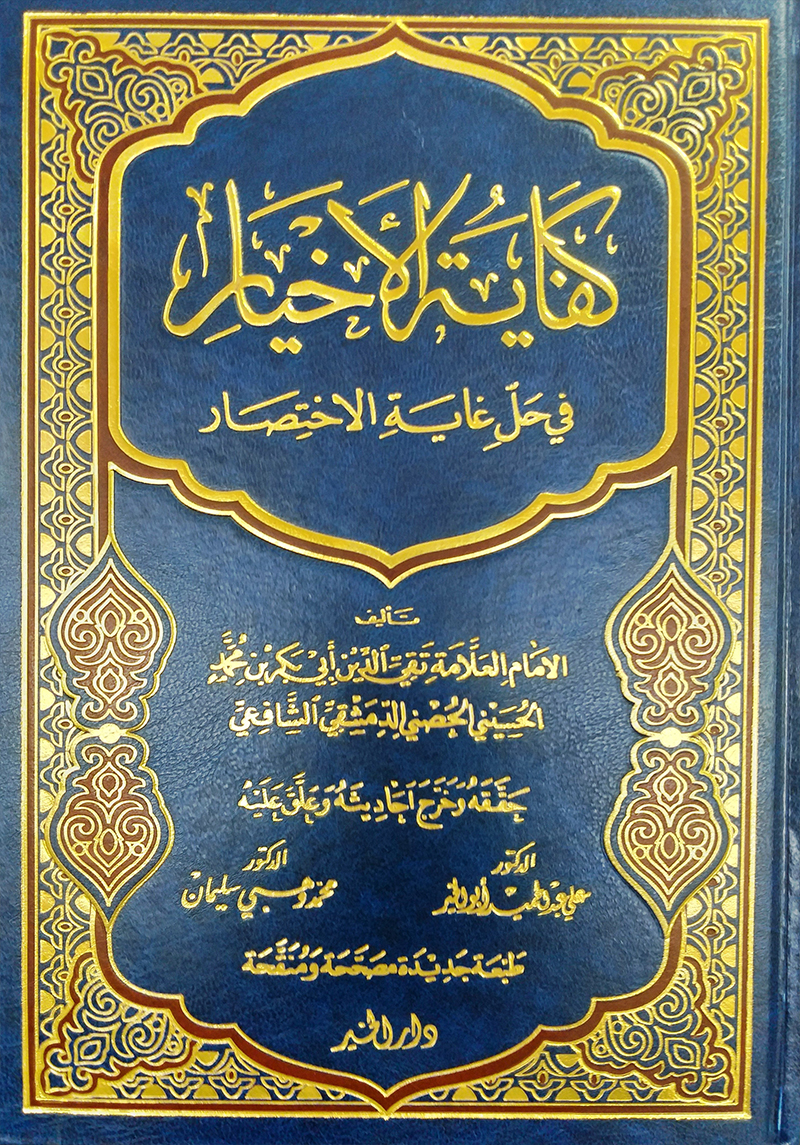 كفَايَةُ الأَخيَارِ
في حَلِّ غايَةِ الاخْتِصَار
تأليف
الإمَامِ العَلَّامَة تَقيِّ الدِّيْن أَبي بَكر بْن مُحَمَّد
الحُسَيْني الحِصْني الدِّمَشْقيِّ الشَّافِعيِّ
حَقَّقَهُ وَخَرَّجَ أَحَاديثَهُ وَعَلَّقَ عَلَيْهِ
الدكتور الدكتور
علي عبد الحميد أبو الخير محمد وهبي سليمان
طَبْعَة جَديْدَة مصَحَّحَة وَمُنَقَّحَة
دار الخير